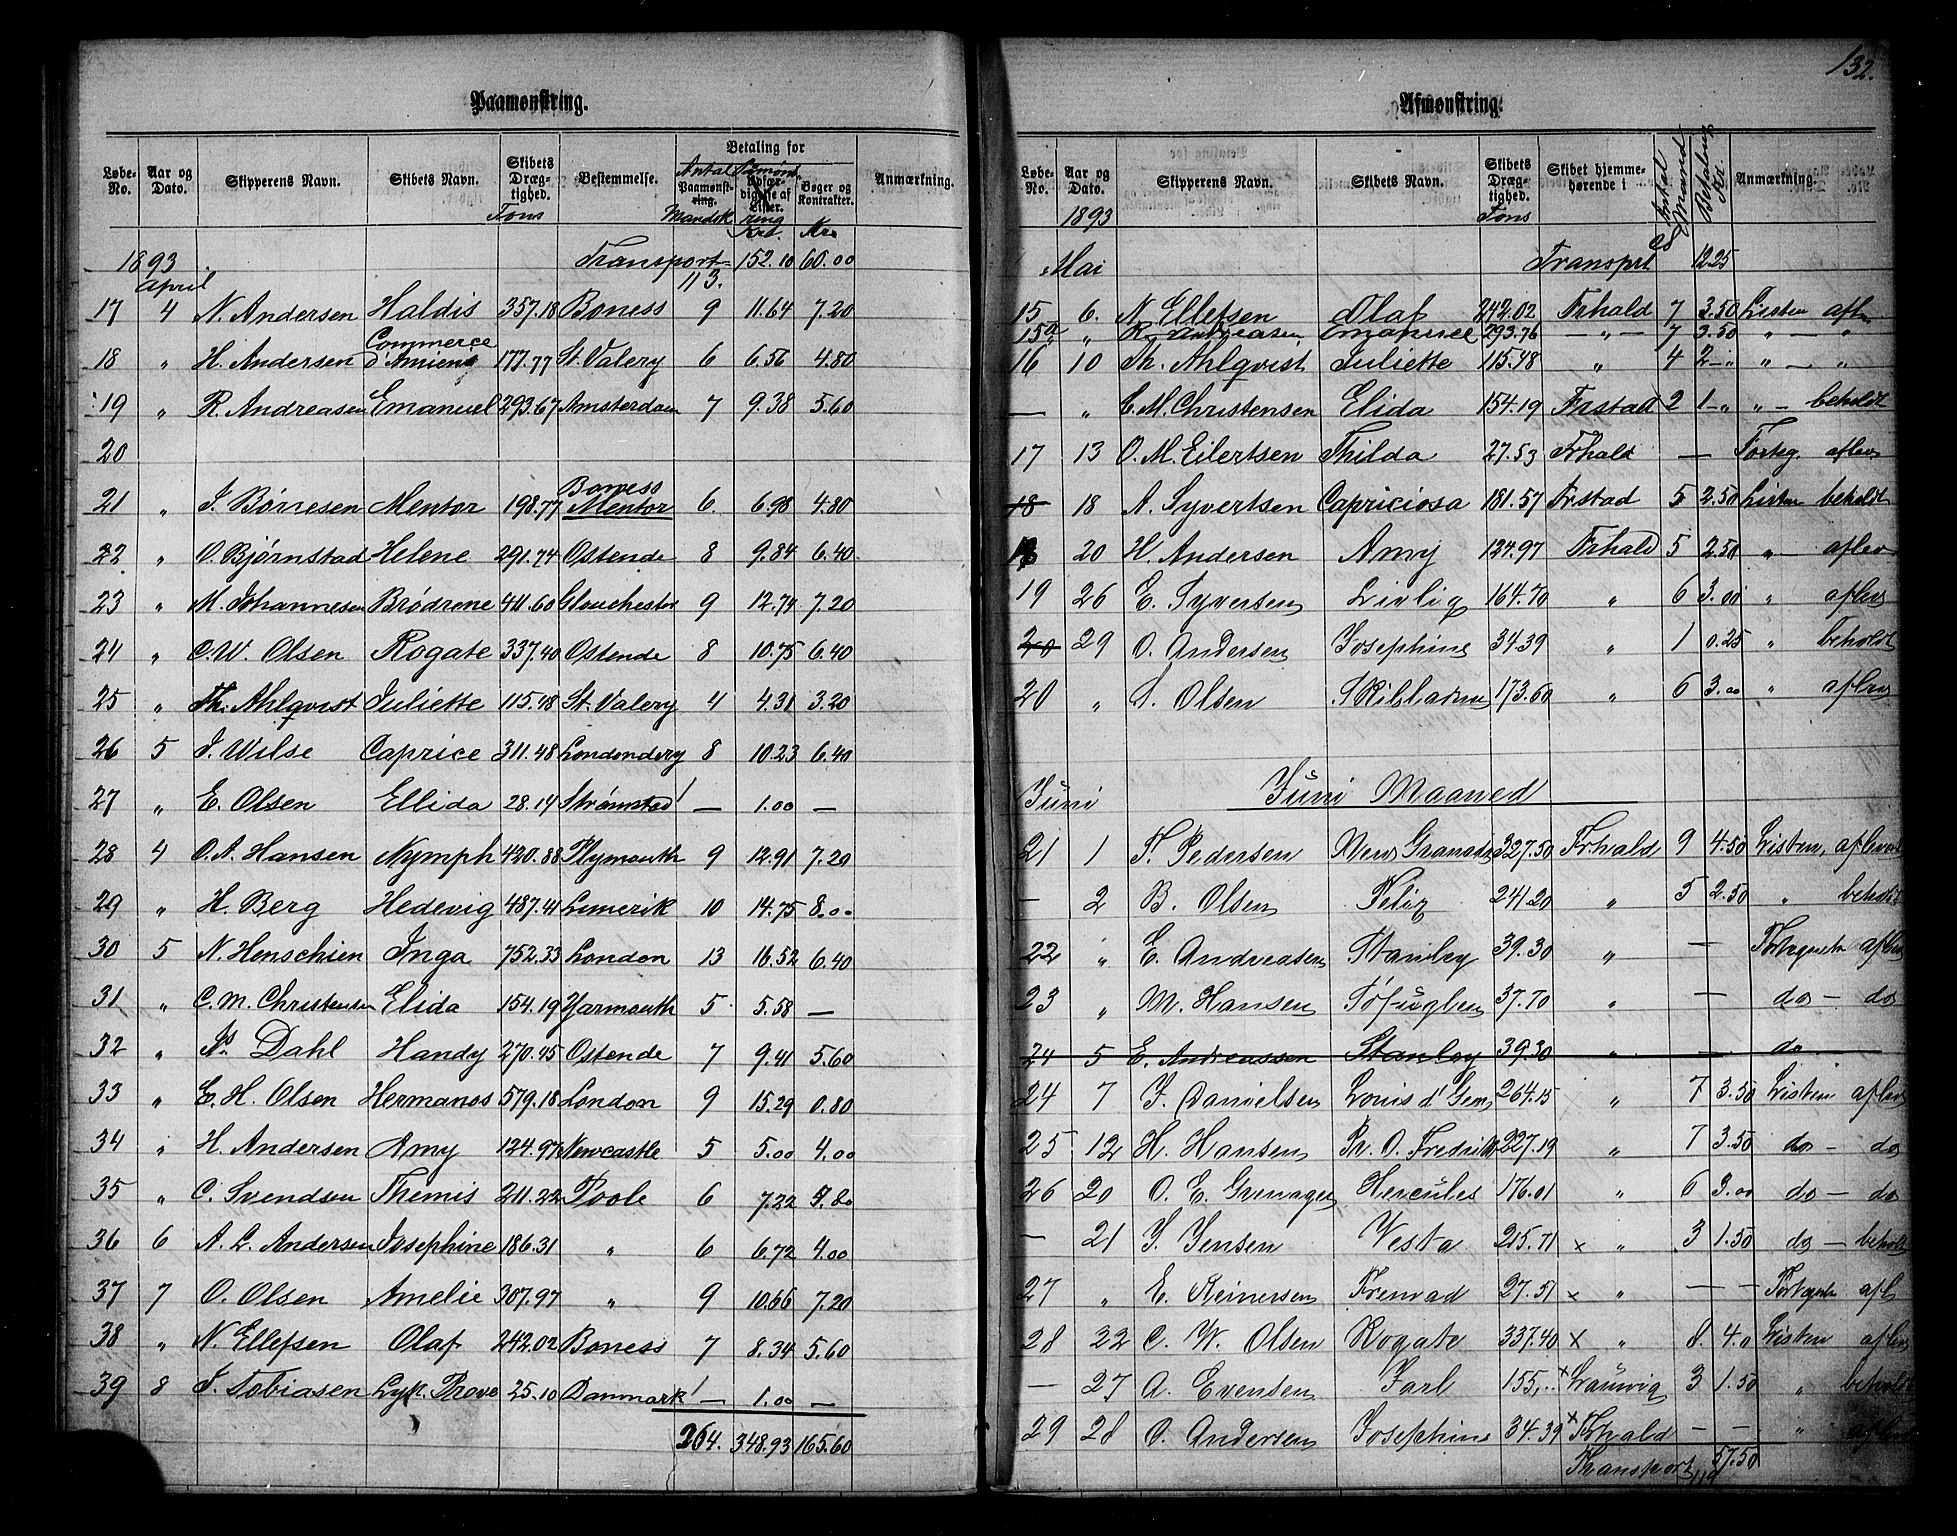 Paamønstring.
Løbe-No. Aar og Dato. Skipperens Navn. Skibets Navn. Skibets Dræg-tighed. Tons Bestemmelse. Betaling for Antal Paamønst-ring. Mandsk Bøger og Kontrakter. Anmærkning.
Kr.
1893 Transport 113. 152.10 60.00
April
17 4 N. Andersen Haldis 357.18 Boness 9 11.64 7.20
18 " H. Andersen Commerce d'Amiens 177.77 St. Valery 6 6.56 4.80
19 " R. Andreasen Emanuel 293.67 Amsterdam 7 9.38 5.60
20
21 " J. Børresen Mentor 198.77 Boness Mentor 6. 6.98 4.80
22 " O. Bjørnstad Helene 291.74 Ostende 8 9.84 6.40
23 " M. Johannesen Brødrene 411.60 Glouchester 9 12.74 7.20
24 " C. W. Olsen Rogate 337.40 Ostende 8 10.75 6.40
25 " Th. Ahlqvist Juliette 115.48 St. Valery 4 4.31 3.20
26 5 J. Wilse Caprice 311.48 Londondery 8 10.23 6.40
27 " E. Olsen Ellida 28.14 Strømstad — 1.00 —
28 4 O. A. Hansen Nymph 420.88 Plymouth 9 12.91 7.20
29 " H. Berg Hedevig 487.41 Limerik 10 14.75 8.00
30 5 N. Henschien Inga 752.33 London 13 16.52 6.40
31 " C. M. Christensen Elida 154.19 Yarmouth 5 5.58 —
32 " Dahl Handy 270.45 Ostende 7 9.41 5.60
33 " E. H. Olsen Hermanos 579.18 London 9 15.29 0.80
34 " H. Andersen Amy 124.97 Newcastle 5 5.00 4.00
35 " C. Svendsen Themis 211.22 Poole 6 7.22
36 6 A. L. Andersen Josephine 186.31 " 6 6.72 4.00
37 7 O. Olsen Amelie 307.97 " 9 10.66 7.20
38 " N. Ellefsen Olaf 242.02 Boness 7 8.34 5.60
39 8 J. Tobiasen Lyk. Prove 25.10 Danmark — 1.00 —
264. 348.93 165.60
132.
Afmønstring.
Løbe-No. Aar og Dato. Skipperens Navn. Skibets Navn. Skibets Dræg-tighed. Tons Skibet hjemme-hørende i Antal Mand Betaling Kr. Anmærkning.
1893
Mai Transport 12.25
15 6. N. Ellefsen Olaf 242.02 Frhald 7 3.50 Listen aflev
15a " R. Andreasen Emanuel 293.76 — " — 7 3.50 " — "
16 10 Th. Ahlqvist Juliette 115.48 " 4 2 — " " — "
— " C. M. Christensen Elida 154.19 Frstad 2 1 — " " — beholdt
17 13 O. M. Eilertsen Thilda 27.53 Frhald — Forteg. aflev
18 18 A. Syvertsen Capriciosa 181.57 Frstad 5 2.50 Listen beholdt
18 20 H. Andersen Amy 124.97 Frhald 5 2.50 " aflev
19 26 E. Syversen Livlig 164.70 " 6 3.00 " aflev
20 29 O. Andersen Josephine 34.39 " 1 0.25 " beholdt
20 " S. Olsen Skibladner 173.60 " 6 3.00 " aflev
Juni Juni Maaned
21 1 T. Pedersen New Granada 327.50 Frhald 9 4.50 Listen, aflevert
— 2 B. Olsen Felix 241.20 " 5 2.50 " beholdt
22 " E. Andreasen Stanley 39.30 " — Fortegnelse aflev
23 " M. Hansen Søfuglen 37.70 " — do — do
24 5 E. Andreassen Stanley 39.30 " — do
24 7 J. Danielsen Louis d' Geer 264.15 " 7 3.50 Listen aflev
25 12 H. Hansen Pr. O. Fredrik 227.19 " 7 3.50 do — do
26 20 O. E. Grenager Hercules 176.01 " 6 3.00 do — do
— 21 J. Jensen Vesta 215.71 x " 3 1.50 do — beholdt
27 " E. Reinersen Fremad 27.51 x " — — Fortegnelse afl
28 22 C. W. Olsen Rogate 337.40 x " 8. 4.0 Listen aflev
— 27 A. Evensen Jarl 155,.. x Laurvig 3 1.50 " beholdt
29 28 O. Andersen Josephine 34.39 x Frhald — — "
Transport 119 57.50